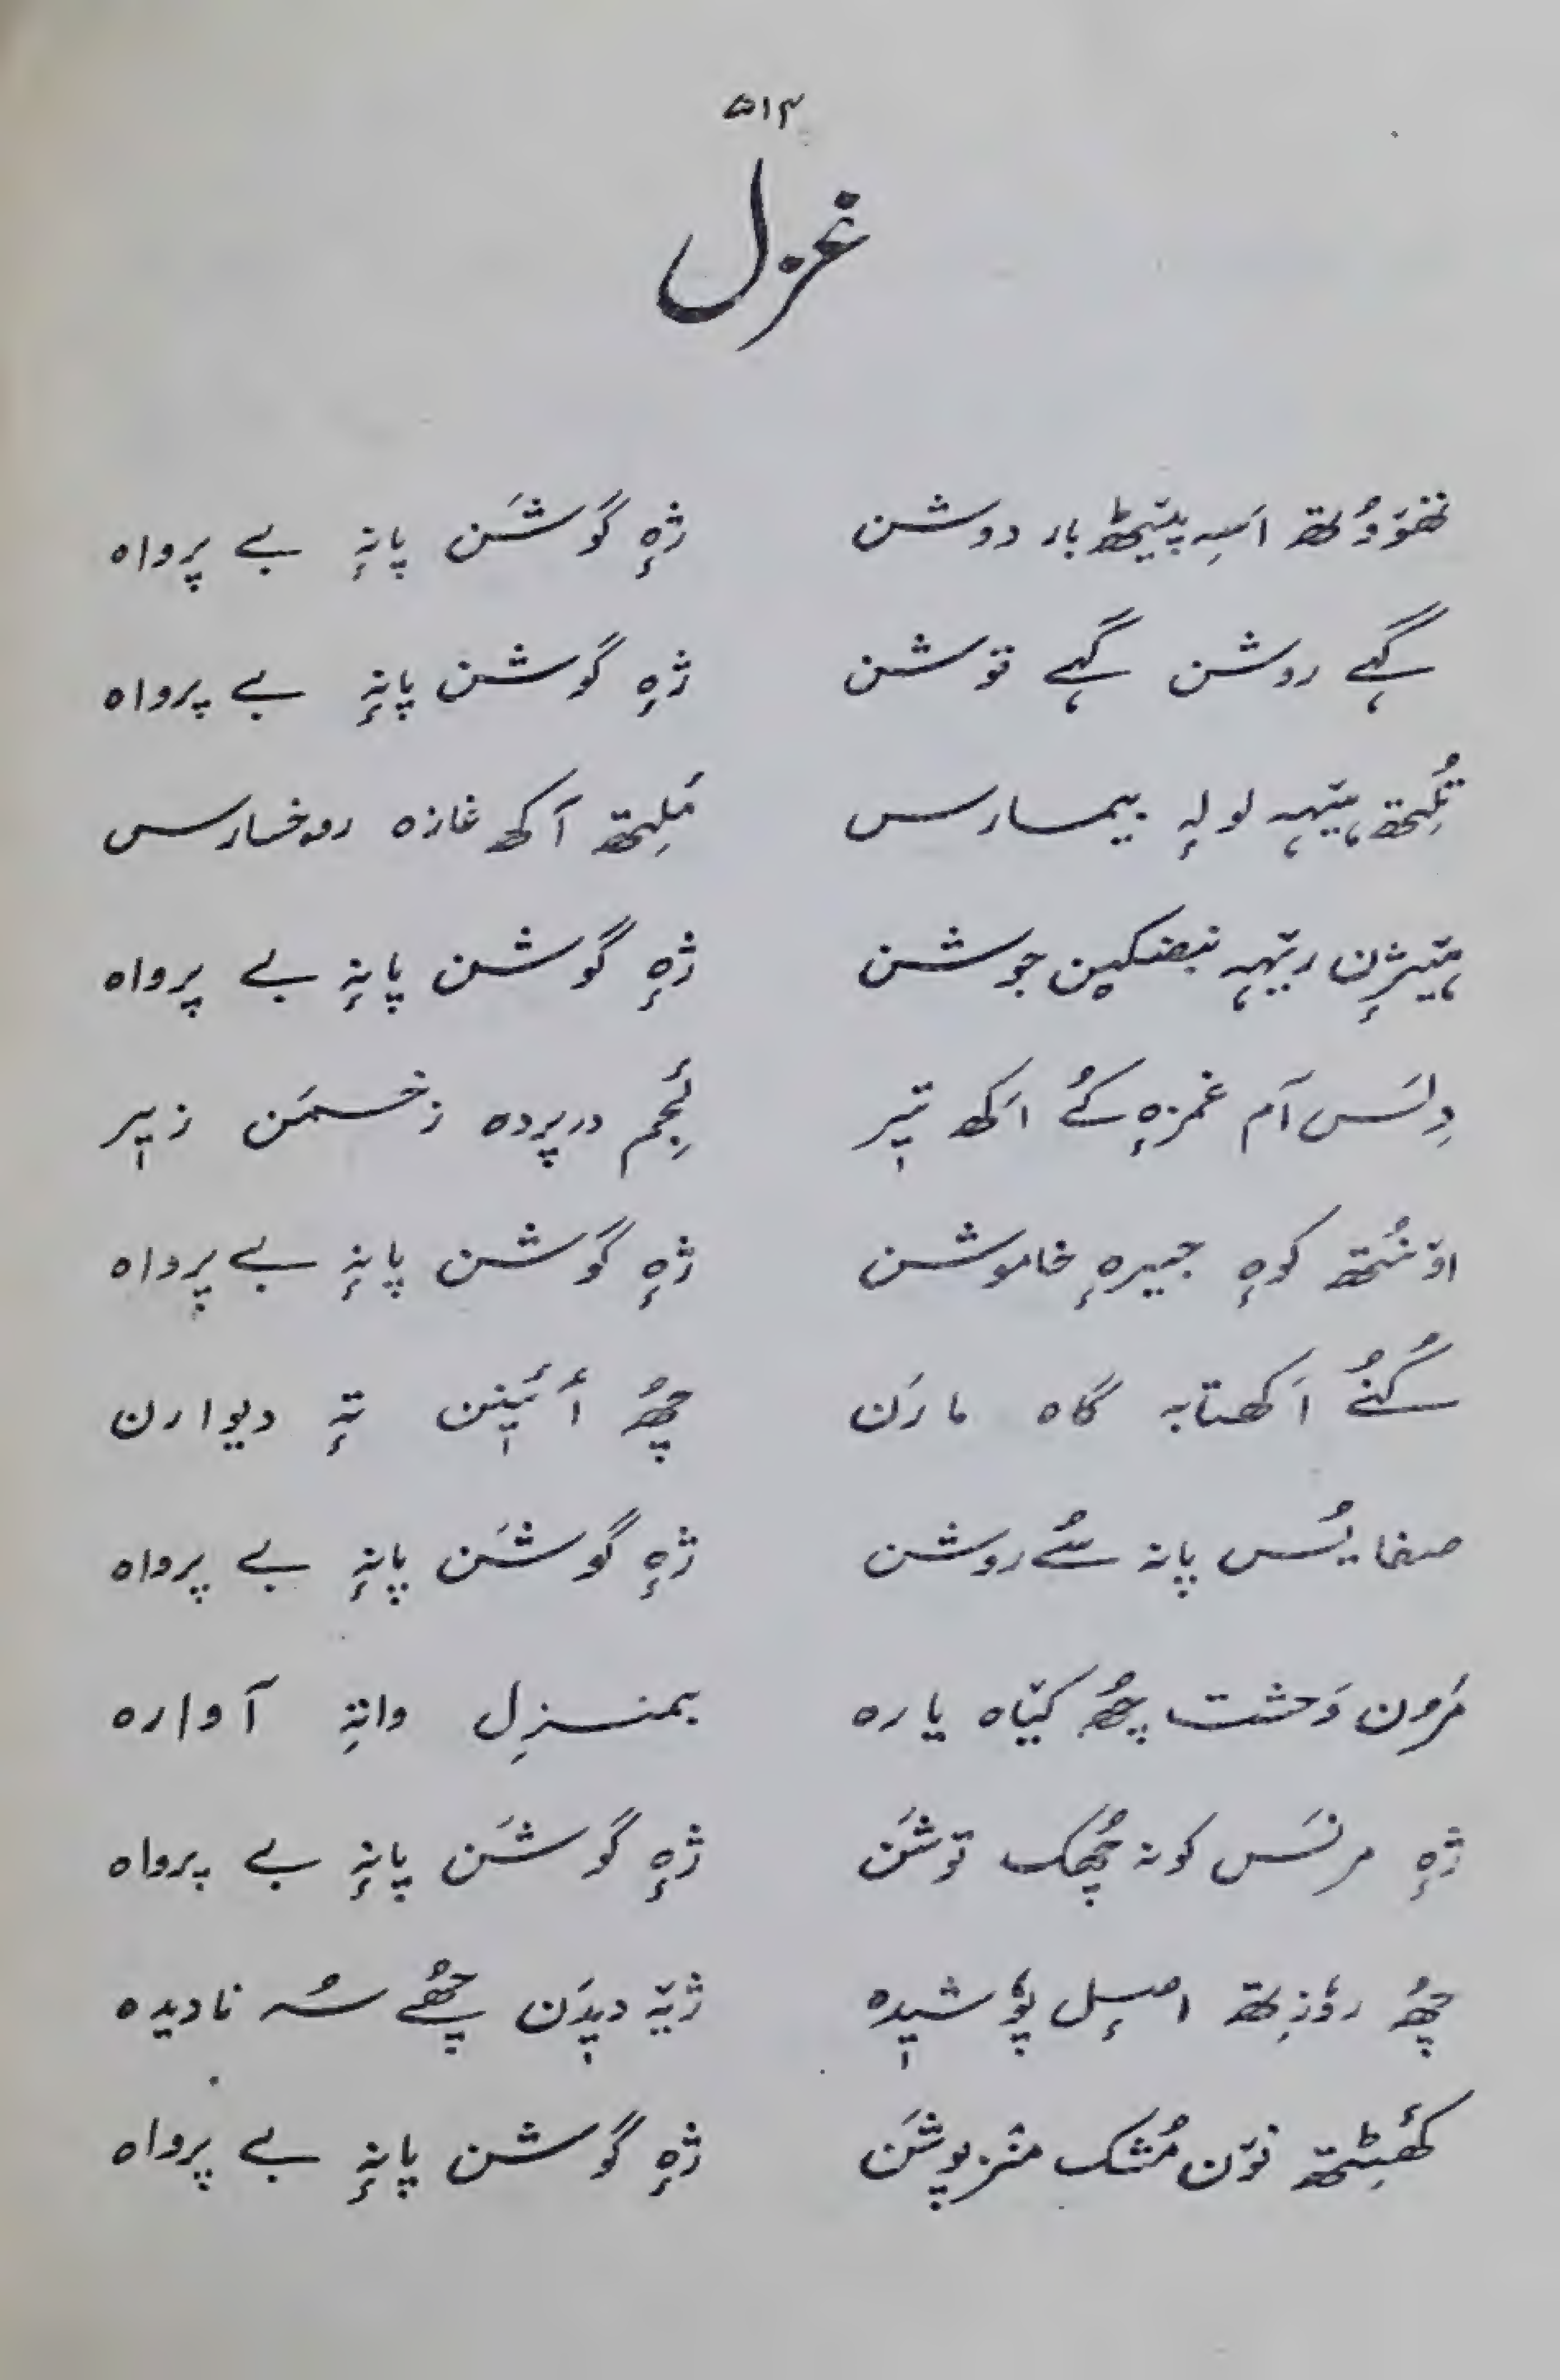 ۵۱۴
غزل
تھوَوُتھ اَسہِ پیٚٹھ بار دوشن ژٕہ گوشَن پانہٕ بے پرواہ
گہے روشن گہے توشن ژٕہ گوشن پانہٕ بے پرواہ
تُلِتھ ہیٚہہ لولہٕ بیمارس مَلِتھ اَکھ غازہ رخسارس
ریٚہہ نبضکین جوشن ژٕہ گوشن پانہٕ بے پرواہ
دِلَس آم غمزہٕ کُے اَکھ تیٖر لُجِم درپردہ زخمَن زیٖر
کوہٕ جیرہٕ خاموشن ژٕہ گوشن پانہٕ بے پرواہ
کُنُے اَکھتابہ گاہ مارَن چھُ أئیٖنن تہٕ دیوارن
صفا یُس پانہ سُے روشن ژٕہ گوشَن پانہٕ بے پرواہ
مَرون وَحشت چھُ کیٚاہ یارہ بمنزِل واتہِ آوارہ
ژٕہ مرنَس کونہ چھُک توشَن ژٕہ گوشَن پانہٕ بے پرواہ
چھُ روٗزِتھ اصٕل پوٗشیٖدہ ژیٚہ دیٖدَن چھُے سُہ نادیدہ
کھٔٹِتھ نوٚن مُشک منز پوشَن ژٕہ گوشن پانہٕ بے پرواہ